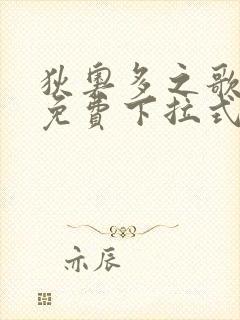 狄奥多之歌
免費下拉式
亦辰